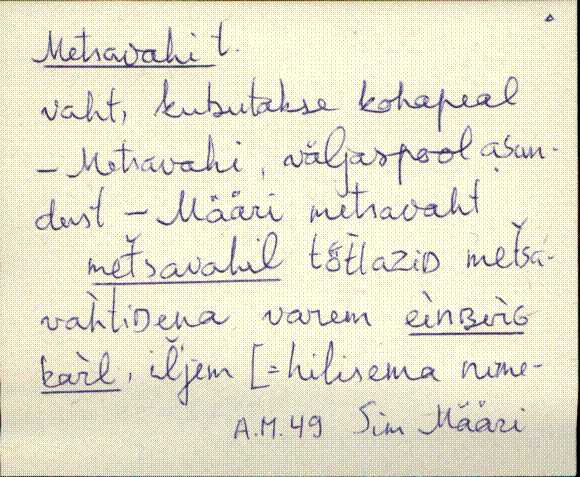 Metsavahi t.
vaht, kutsutakse kohapeal
– Metsavahi, väljaspool asun-
dust – Määri metsavaht
met̆savahil töt̆lazid met̆sa-
vàhtiDena varem eìnBèrG
kàrl, il̆jem [= hilisema nime-
A.M. 49 Sim Määri